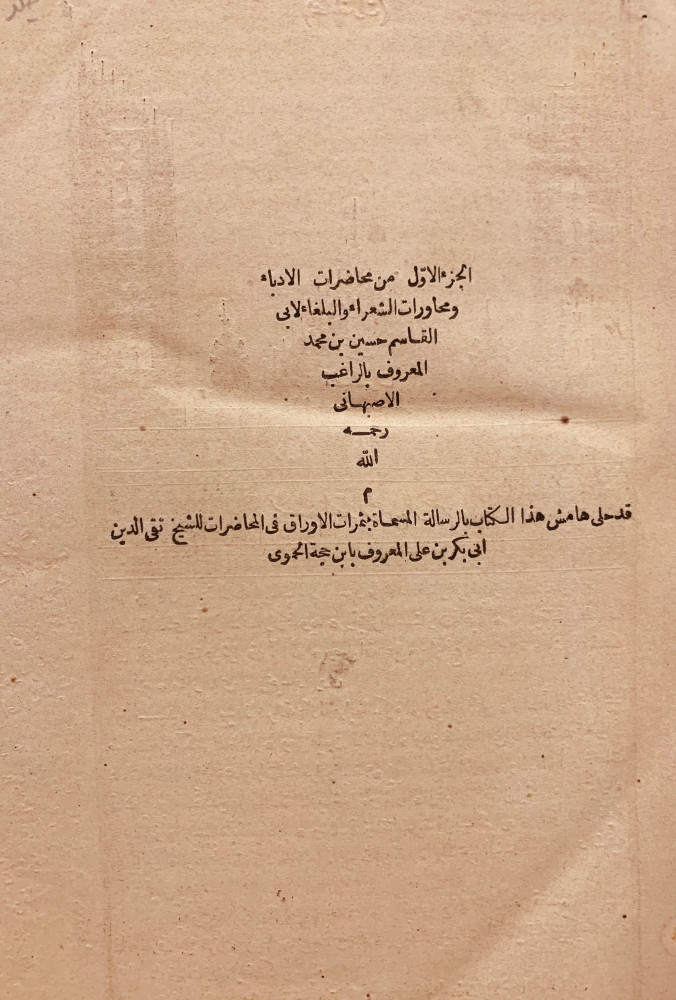 الجزء الاوّل من محاضرات الادباء
ومحاورات الشعراء والبلغاء لابى
القاسم حسين بن محمد
المعروف بالراغب
الاصبهانى
رحمه
الله
م
قد حلى هامش هذا الكتاب بالرسالة المسماة بثمرات الاوراق فى المحاضرات للشيخ تقى الدين
ابى بكر بن على المعروف بابن حجة الحموى